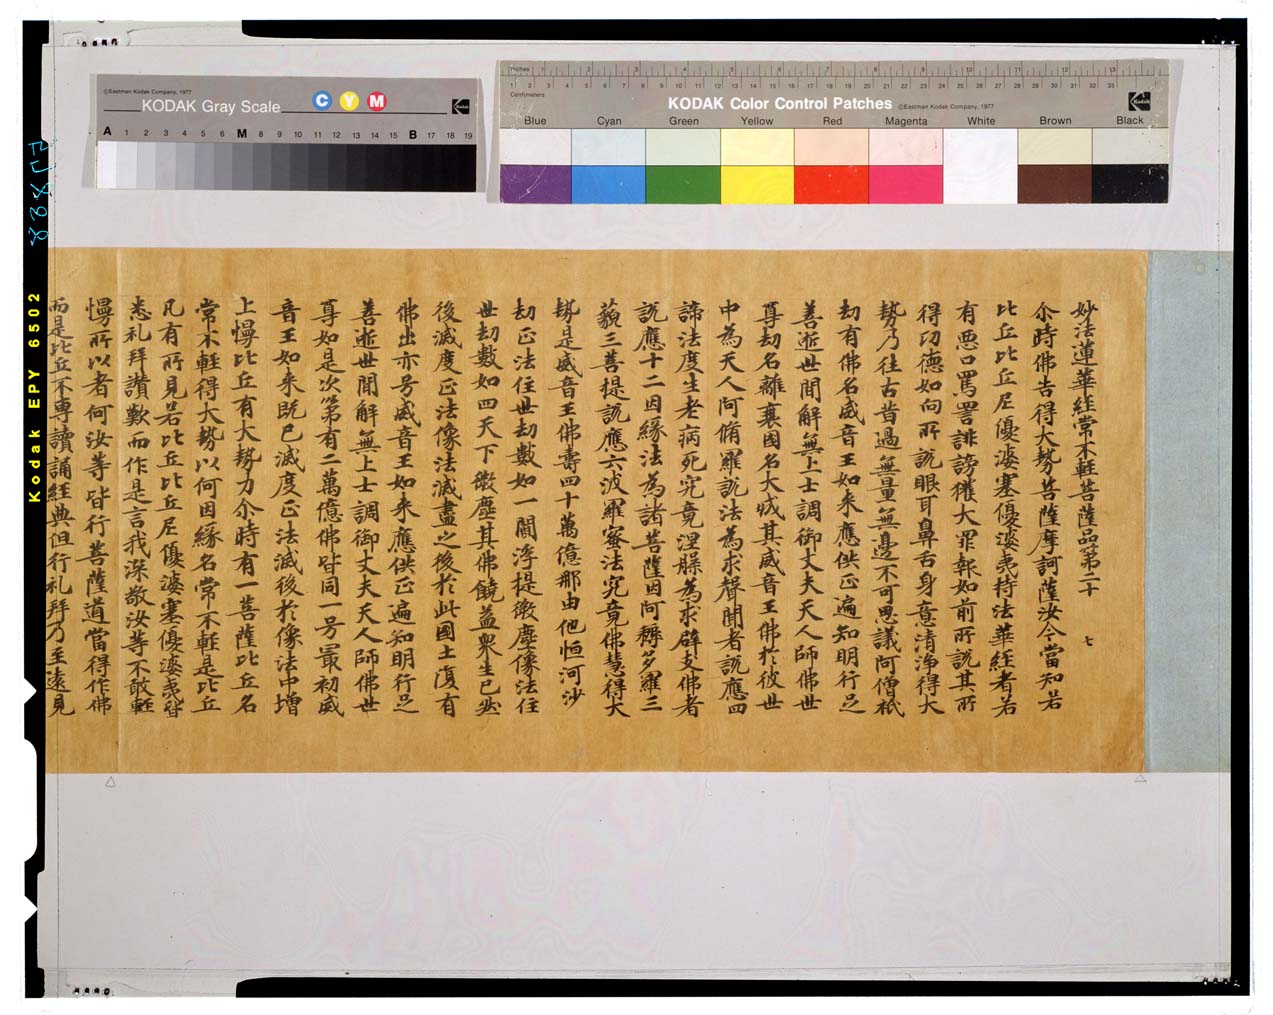 ©Eastman Kodak Company, 1977
KODAK Gray Scale
C Y M
Kodak
A 1 2 3 4 5 6 M 8 9 10 11 12 13 14 15 B 17 18 19
Inches 1 2 3 4 5 6 7 8 9 10 11 12 13
1 2 3 4 5 6 7 8 9 10 11 12 13 14 15 16 17 18 19 20 21 22 23 24 25 26 27 28 29 30 31 32 33
Centimeters
KODAK Color Control Patches ©Eastman Kodak Company, 1977
Kodak
Blue Cyan Green Yellow Red Magenta White Brown Black
Kodak EPY 6502
妙法蓮華經常不輕菩薩品第二十 七
尒時佛告得大勢菩薩摩訶薩汝今當知若
比丘比丘尼優婆塞優婆夷持法華經者若
有惡口罵詈誹謗獲大罪報如前所說其所
得功德如向所說眼耳鼻舌身意清淨得大
勢乃往古昔過無量無邊不可思議阿僧祇
劫有佛名威音王如来應供正遍知明行足
善逝世間解無上士調御丈夫天人師佛世
尊劫名離襄國名大成其威音王佛於彼世
中為天人阿脩羅說法為求聲聞者說應四
諦法度生老病死究竟涅槃為求辟支佛者
說應十二因緣法為諸菩薩因阿耨多羅三
藐三菩提說應六波羅蜜法究竟佛慧得大
勢是威音王佛壽四十萬億那由他恒河沙
劫正法住世劫數如一閻浮提微塵像法住
世劫數如四天下微塵其佛饒益衆生已然
後滅度正法像法滅盡之後於此國土復有
佛出亦号威音王如来應供正遍知明行足
善逝世間解無上士調御丈夫天人師佛世
尊如是次第有二萬億佛皆同一号最初威
音王如来既已滅度正法滅後於像法中增
上慢比丘有大勢力尒時有一菩薩比丘名
常不輕得大勢以何因緣名常不輕是比丘
凡有所見若比丘比丘尼優婆塞優婆夷皆
悉礼拜讃歎而作是言我深敬汝等不敢輕
慢所以者何汝等皆行菩薩道當得作佛
而是比丘不專讀誦經典但行礼拜乃至遠見